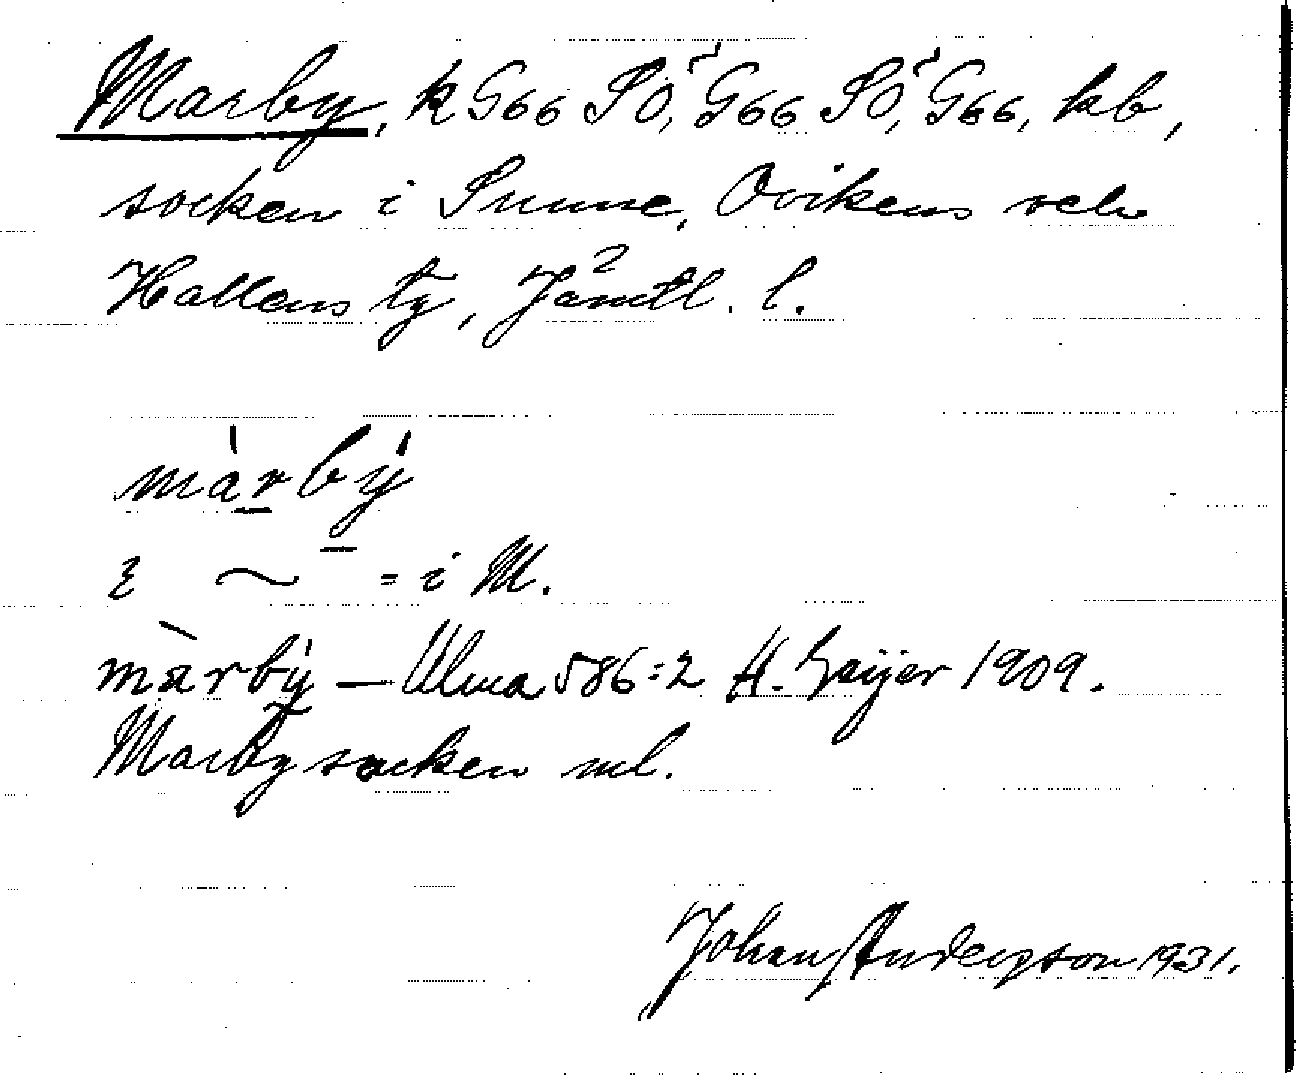 Marby, k G66 SO, G66 SO, G66, kb,
socken i Sunne, Ovikens och
Hallens tg, Jämtl. l.
màrbý
ξ ~ = i M.
màrbý — Ulma 586:2 H. Geijer 1909.
Marby socken ml.
Johan Anderson 1931.